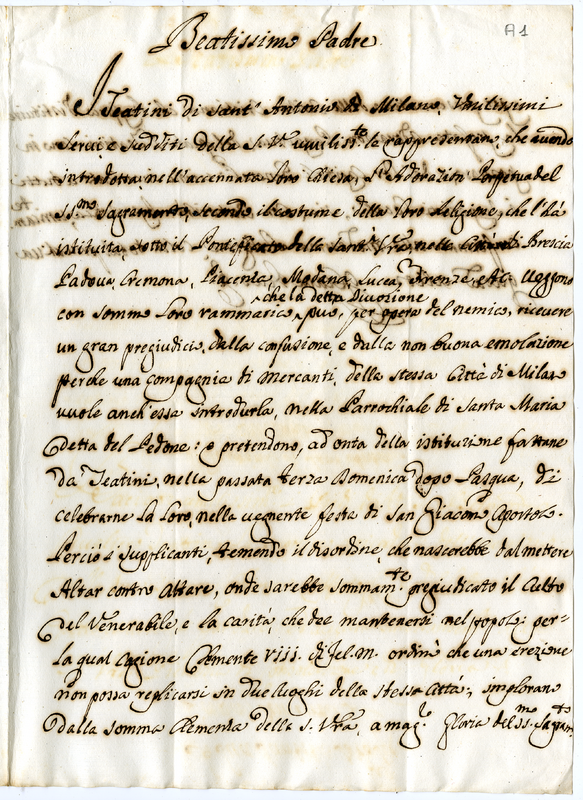 A1
Beatissimo Padre
I Teatini di Sant' Antonio di Milano, Umilissimi
Servi e sudditi della S. Vª umilisste le rappresentano, che avendo
introdotta, nell'accennata loro Chiesa, l'Adorazion Perpetua del
SSmo Sagramento, secondo il costume della loro Religione, che l'ha
istituita, sotto il Pontificato della Santà Vrã, nelle Città di Brescia
Padova, Cremona, Piacenza, Modana, Lucca, Firenze, etc. Veggono
che la detta Divozione
con sommo loro rammarico, può, per opera del nemico, ricevere
un gran pregiudicio, dalla confusione, e dalla non buona emolazione
perche una Compagnia di Mercanti, della stessa Città di Milano
vuole anch'essa introdurla, nella Parrochiale di Santa Maria
detta del Pedone: e pretendono, ad onta della istituzione fattane
da' Teatini, nella passata terza Domenica dopo Pasqua, di
celebrarne la loro, nella vegnente festa di San Giacomo Apostolo.
Perciò i supplicanti, temendo il disordine, che nascerebbe dal mettere
Altar contro Altare, onde sarebbe sommamte pregiudicato il Culto
del Venerabile, e la carità, che dee mantenersi nel popolo: per=
la qual cagione Clemente VIII. di fel. m. ordinò che una erezione
non possa replicarsi in due luoghi della stessa Città, implorano
dalla somma Clemenza della S. Vrã, a magr Gloria del SSmo Sagramto